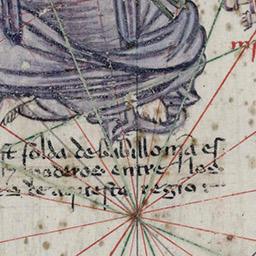 st soldà de babillonia es
poderos entre los
de aquesta regio: